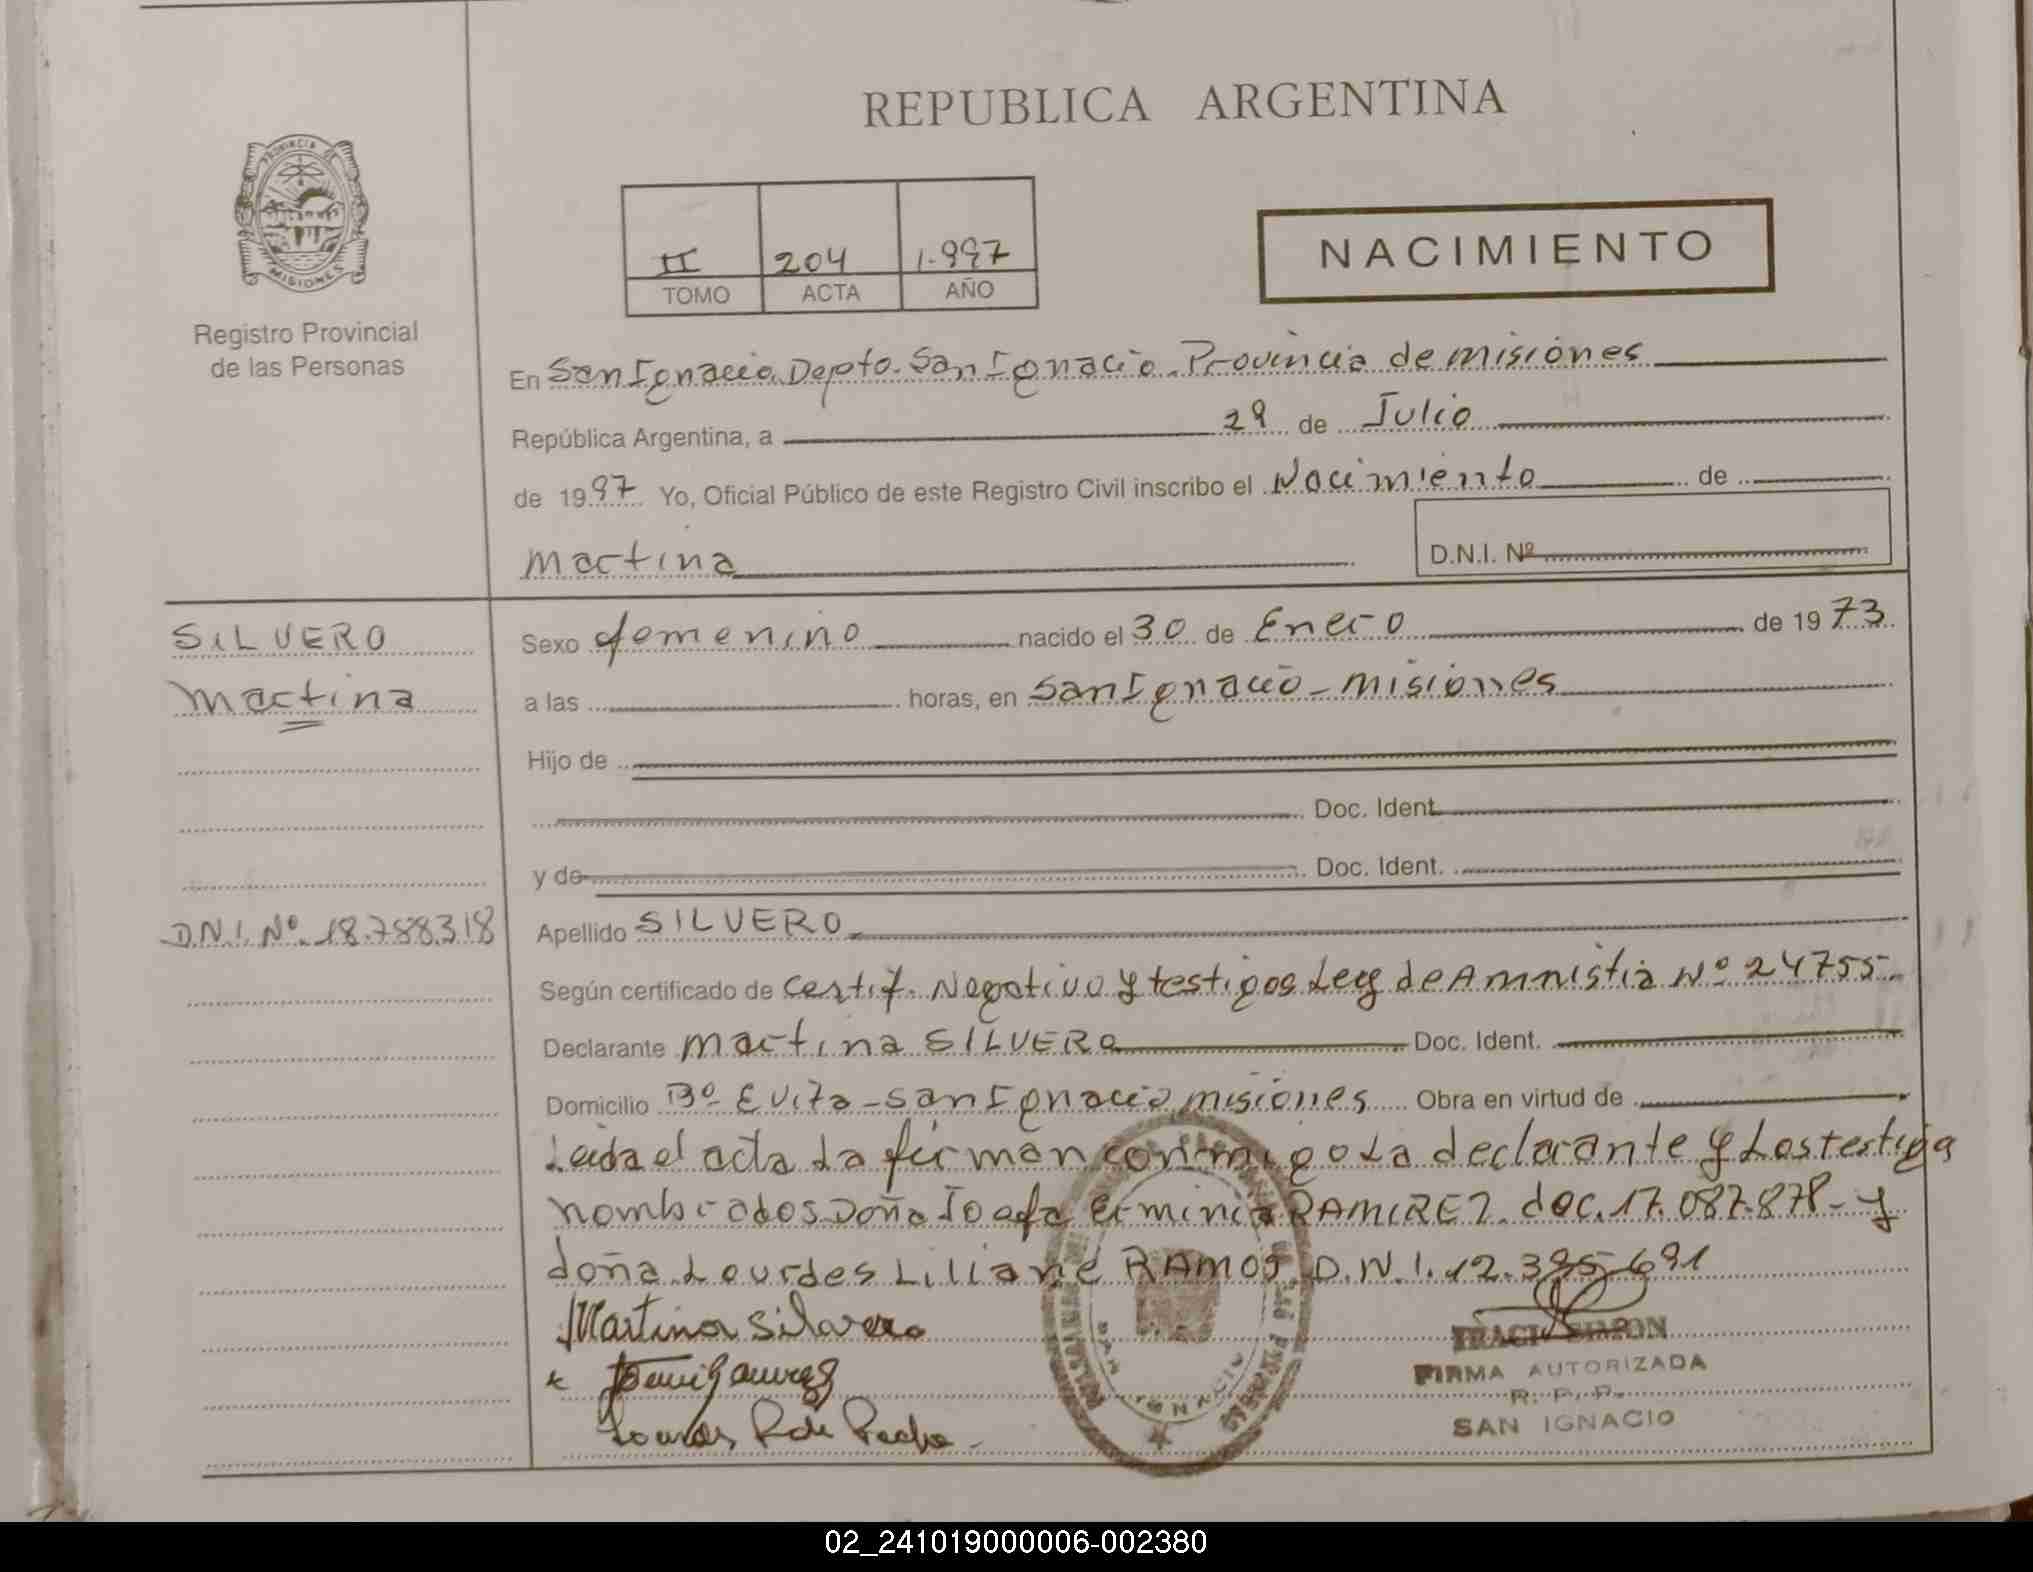 REPUBLICA ARGENTINA
PROVINCIA DE
MISIONES
Registro Provincial
de las Personas
II 204 1.997
TOMO ACTA AÑO
NACIMIENTO
En San Ignacio, Depto. San Ignacio. Provincia de misiones
República Argentina, a 29 de Julio
de 1997 Yo, Oficial Público de este Registro Civil inscribo el Nacimiento de
Martina
D.N.I. Nº
SILVERO
Martina
D.N.I. Nº 18.788.318
Sexo femenino nacido el 30 de Enero de 1973
a las horas, en San Ignacio - misiones
Hijo de
Doc. Ident.
y de Doc. Ident.
Apellido SILVERO
Según certificado de Certif. Negativo y testigos Ley de Amnistia Nº 24755
Declarante Martina SILVERO Doc. Ident.
Domicilio Bº Evita - San Ignacio misiones Obra en virtud de
Leida el acta la firman conmigo la declarante y los testigo
nombrados Doña Erminia RAMIREZ. doc. 17.087.878 - y
doña Lourdes Liliane RAMOS D.N.I. 12.395.691
Martina Silvero
Lourdes R de
SAN IGNACIO
FIRMA AUTORIZADA
R. P. P.
SAN IGNACIO
02_241019000006-002380